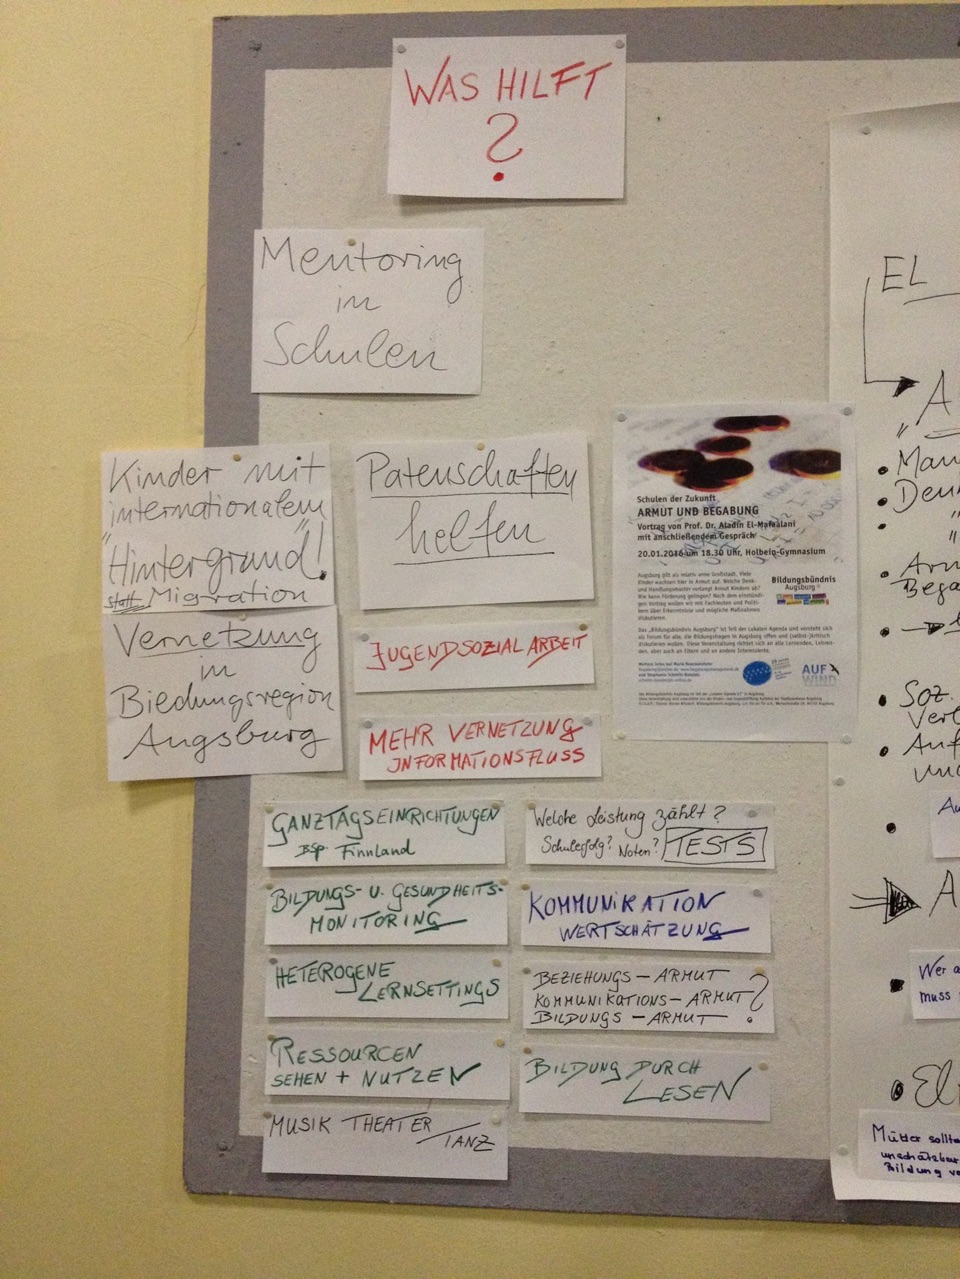 WAS HILFT
?
Mentoring
in
Schulen
Kinder mit
internationalem
"Hintergrund"!
statt Migration
Patenschaften
helfen
Vernetzung
in
Biedungsregion
Augsburg
JUGENDSOZIALARBEIT
MEHR VERNETZUNG
INFORMATIONSFLUSS
Schulen der Zukunft
ARMUT UND BEGABUNG
Vortrag von Prof. Dr. Aladin El-Mafaalani
mit anschließendem Gespräch
20.01.2016 um 18.30 Uhr, Holbein-Gymnasium
Bildungsbündnis
Augsburg
AUF
WIND
GANZTAGSEINRICHTUNGEN
BSP Finnland
BILDUNGS- U. GESUNDHEITS-
MONITORING
HETEROGENE
LERNSETTINGS
RESSOURCEN
SEHEN + NUTZEN
MUSIK THEATER
TANZ
Welche Leistung zählt?
Schulerfolg? Noten? TESTS
KOMMUNIKATION
WERTSCHÄTZUNG
BEZIEHUNGS-ARMUT
KOMMUNIKATIONS-ARMUT ?
BILDUNGS-ARMUT
BILDUNG DURCH
LESEN
EL
A
Soz.
Auf
Wer
muss
unschätzbar
Bildung